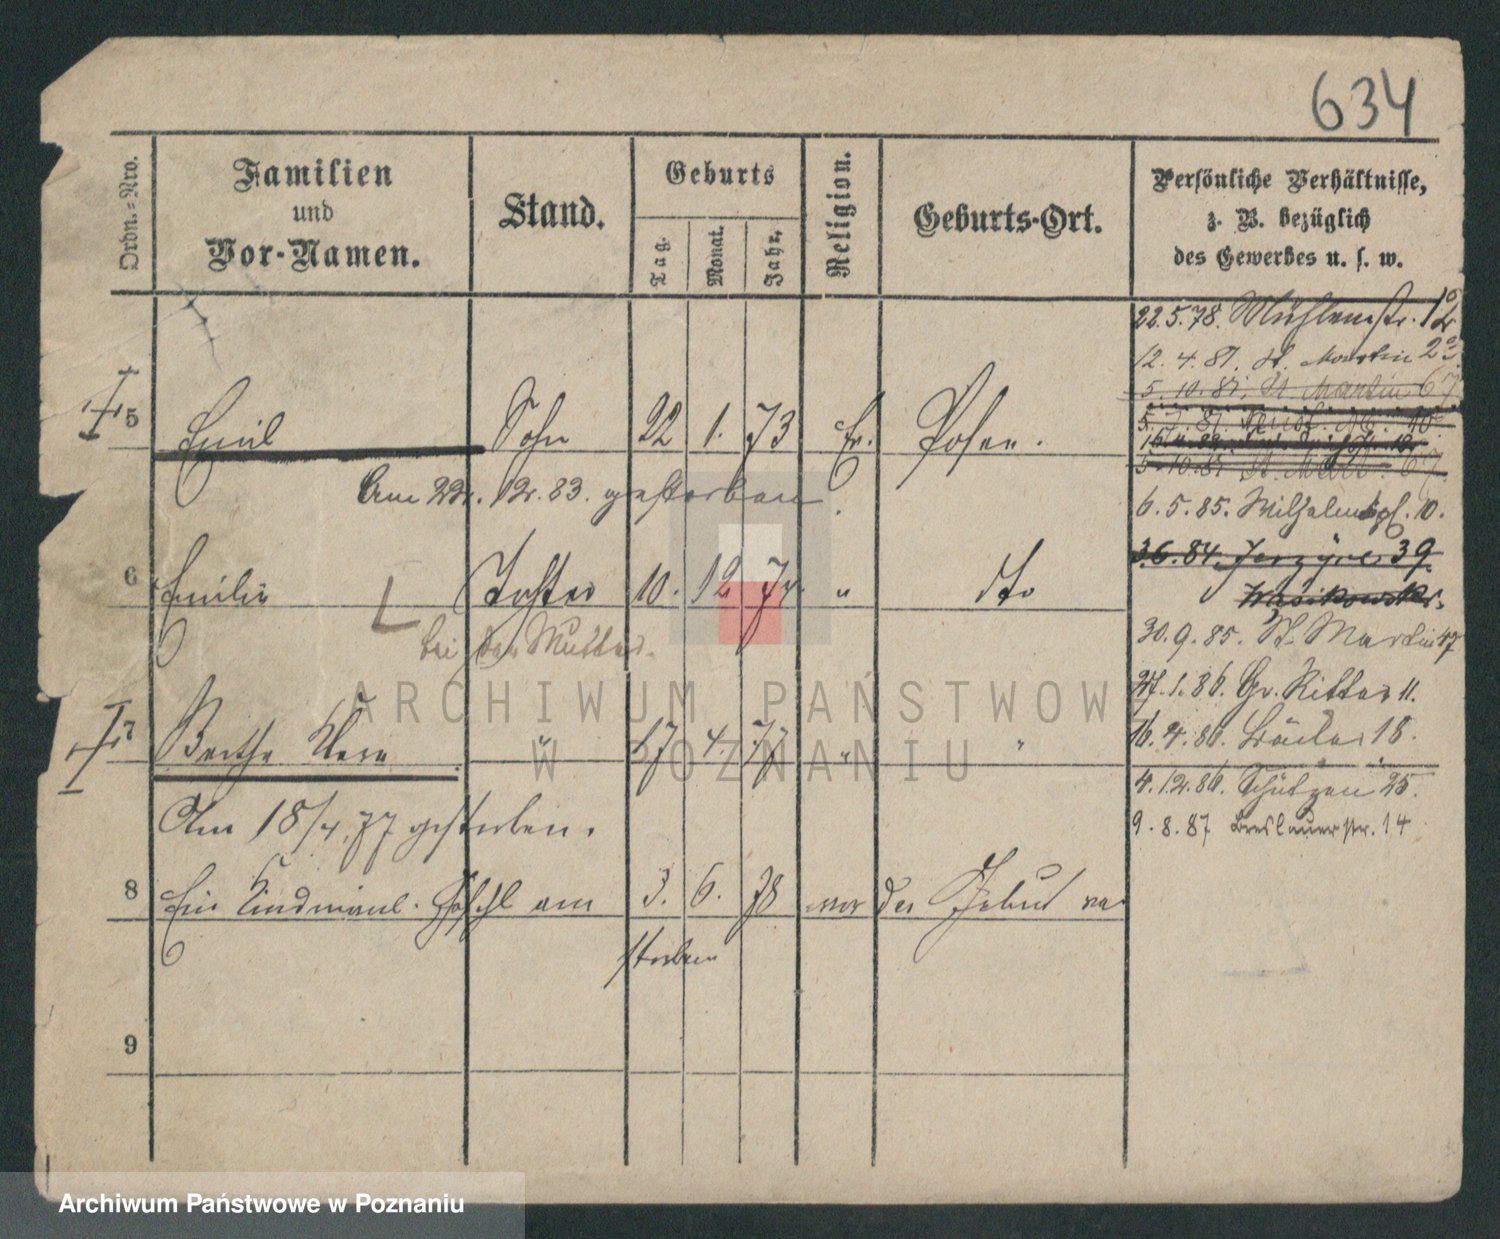 634
Ordn.-Nro.
Familien
und
Vor-Namen.
Stand.
Geburts
Tag.
Monat.
Jahr.
Religion.
Geburts-Ort.
Persönliche Verhältnisse,
z. B. bezüglich
des Gewerbes u. s. w.
22.5.78. Mühlenstr. 12
12. 4. 81. St. Martin 23
5. 10. 81. St Martin 67
5 Emil Sohn 22 1. 73 Ev. Posen.
5. 10. 81 St. Mart. 67.
Am 22. 12. 83. gestorben.
6. 5. 85. Wilhelmspl. 10.
3.6.84. Jerzyce 39
6 Emilie Tochter 10. 12 74. " dto
Wasikowski.
bei der Mutter.
30. 9. 85. St. Martin 47
27. 1. 86. Gr. Ritter 11.
7 Bertha Clara " 17 4. 77 " "
16. 4. 86. Bäcker 18.
4. 12. 86. Schützen 25.
Am 18/4. 77 gestorben.
9. 8. 87 Breslauerstr. 14
8 Ein Kind männl. Geschl am 3. 6. 78 vor der Geburt ver
storben
9
ARCHIWUM PAŃSTWOW
W POZNANIU
Archiwum Państwowe w Poznaniu